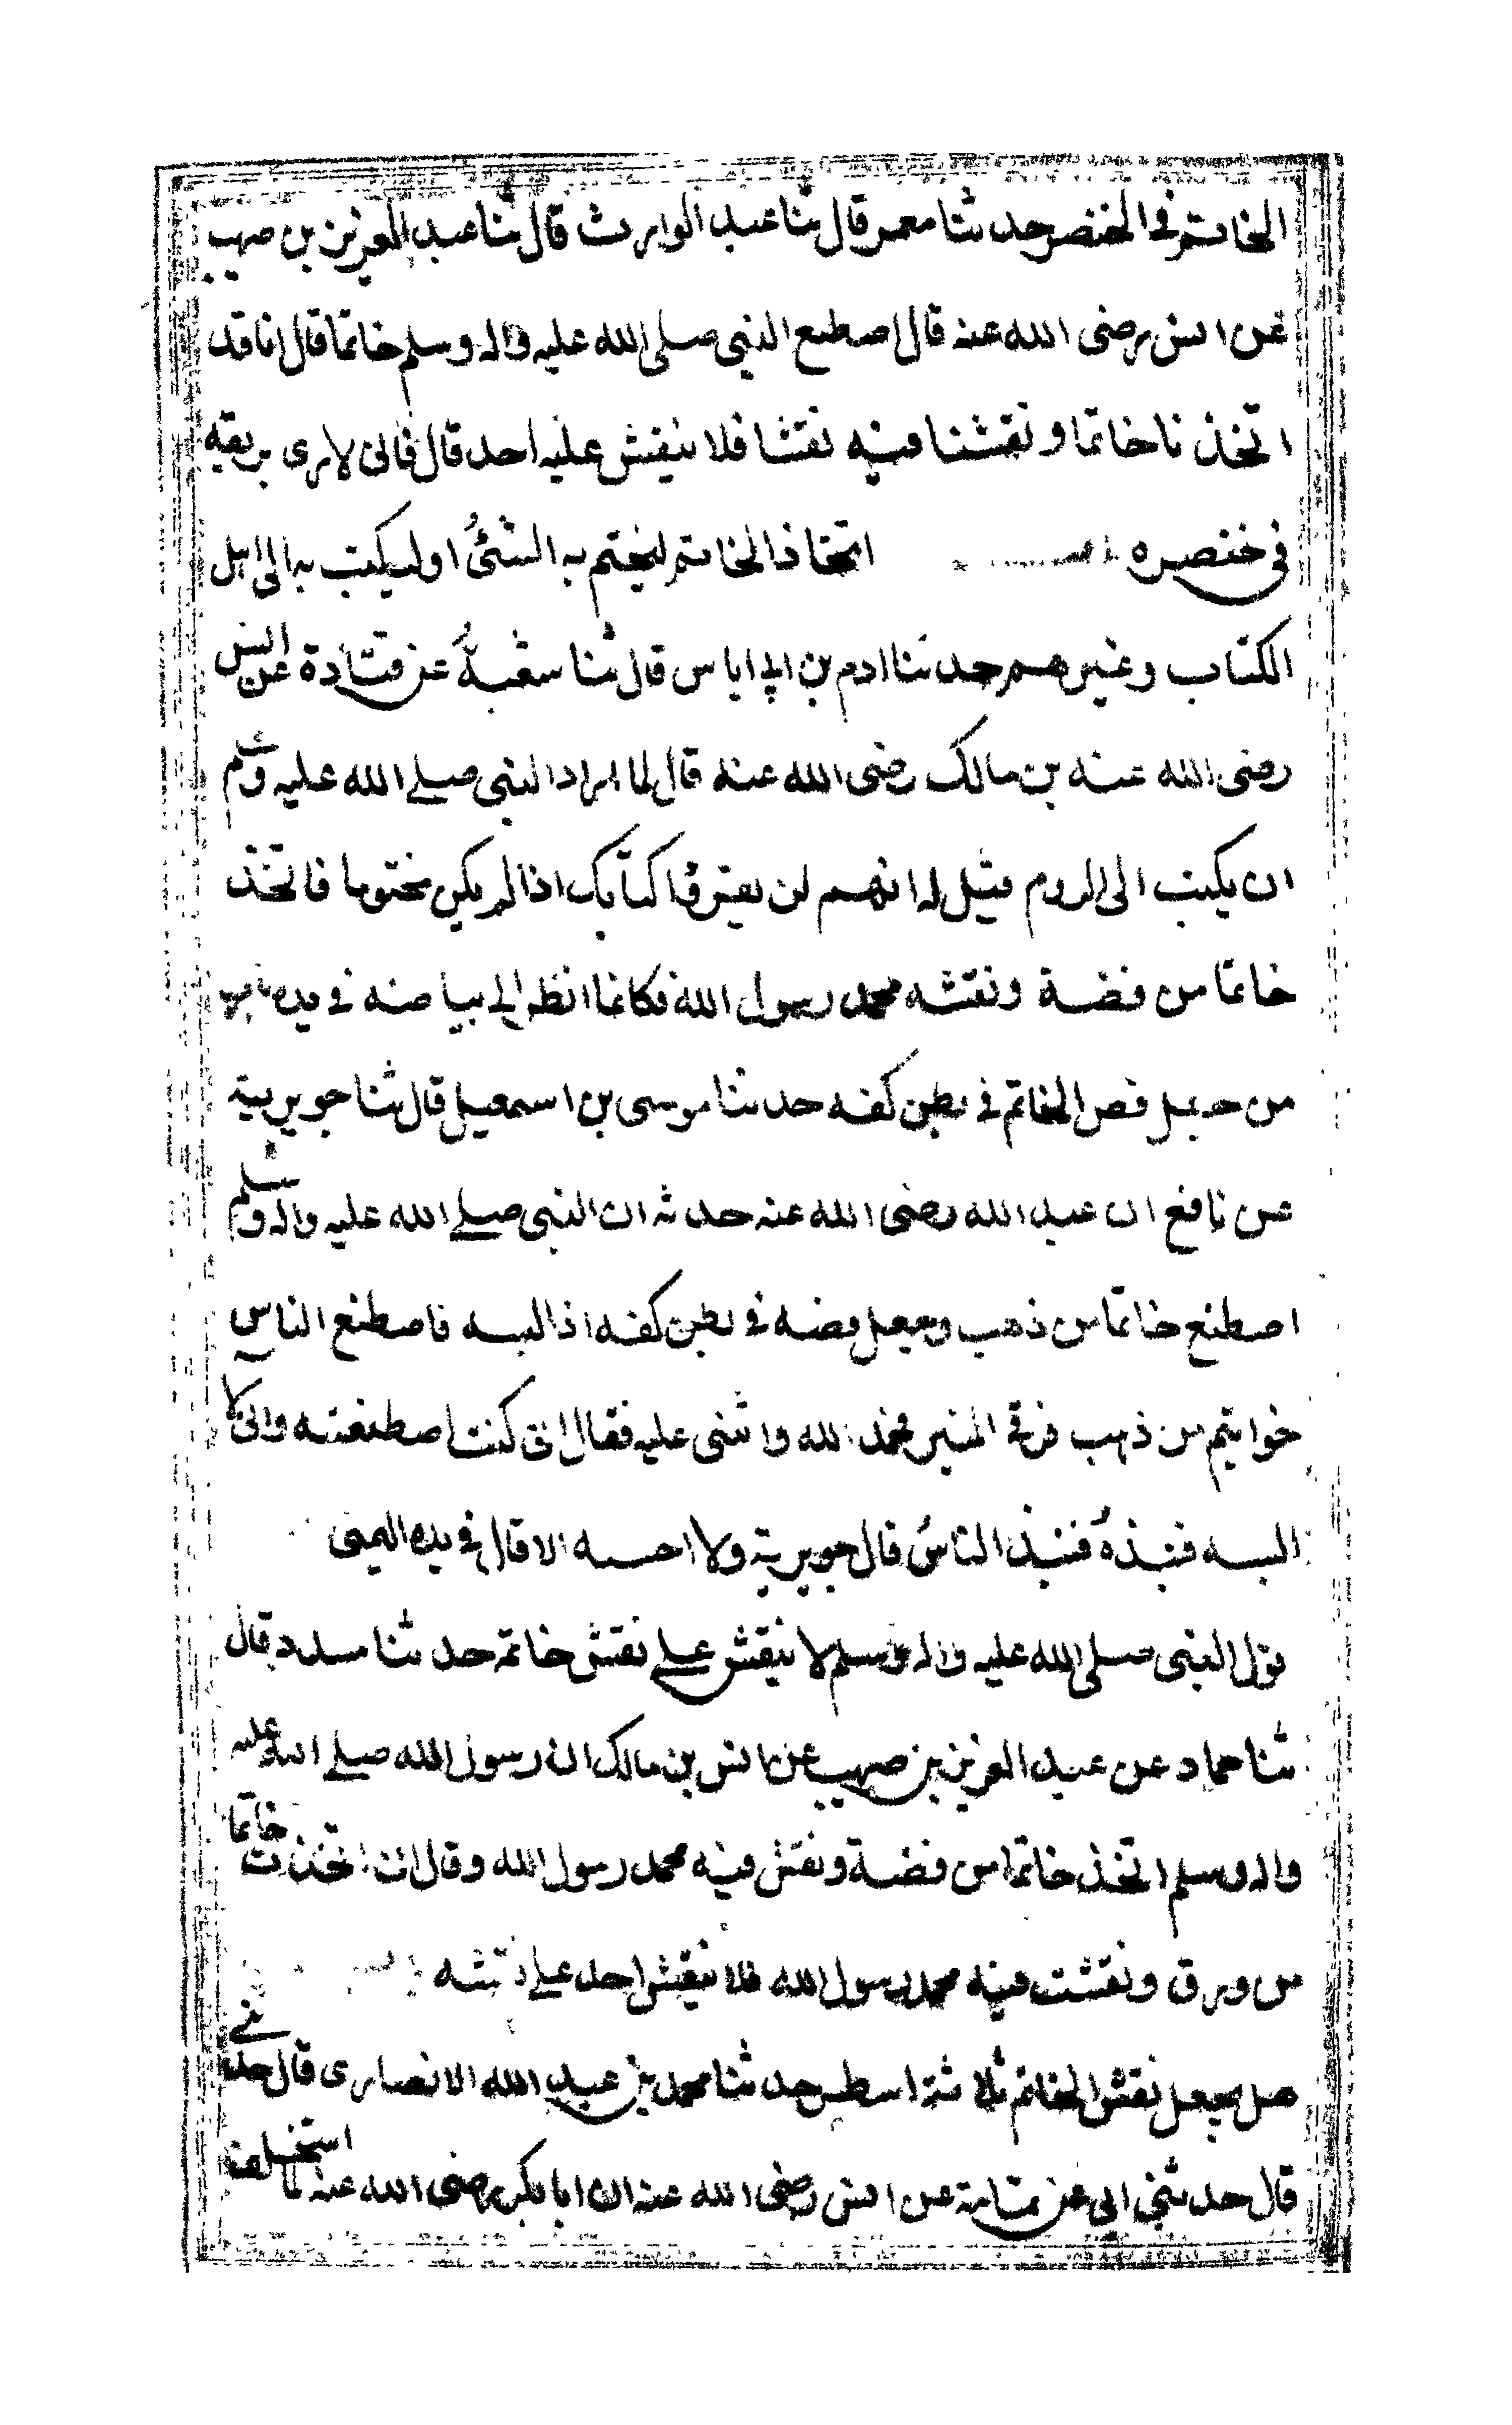 الخاتم في الخنصر حدثنا معمر قال ثنا عبد الوارث قال ثنا عبد العزيز بن صهيب
عن انس رضى الله عنه قال اصطنع النبي صلى الله عليه واله وسلم خاتما قال انا قد
اتخذنا خاتما ونقشنا فيه نقشا فلا ينقش عليه احد قال فانى لارى بريقه
في خنصره اتخاذ الخاتم ليختم به الشئ او ليكتب به الى اهل
الكتاب وغيرهم حدثنا ادم بن ابي اياس قال ثنا شعبة عن قتادة عن انس
رضى الله عنه بن مالك رضى الله عنه قال لما اراد النبي صلى الله عليه وسلم
ان يكتب الى الروم قيل له انهم لن يقرؤا كتابك اذا لم يكن مختوما فاتخذ
خاتما من فضة ونقشه محمد رسول الله فكانما انظر الى بياضه في يده باب
من جعل فص الخاتم في بطن كفه حدثنا موسى بن اسمعيل قال ثنا جويرية
عن نافع ان عبد الله رضى الله عنه حدثه ان النبي صلى الله عليه واله وسلم
اصطنع خاتما من ذهب وجعل فصه في بطن كفه اذا لبسه فاصطنع الناس
خواتيم من ذهب فرقي المنبر فحمد الله واثنى عليه فقال انى كنت اصطنعته وانى لا
البسه فنبذه فنبذ الناس قال جويرية ولا احسبه الا قال في يده اليمنى
قول النبي صلى الله عليه واله وسلم لا ينقش على نقش خاتمه حدثنا مسدد قال
ثنا حماد عن عبد العزيز بن صهيب عن انس بن مالك ان رسول الله صلى الله عليه
واله وسلم اتخذ خاتما من فضة ونقش فيه محمد رسول الله وقال انى اتخذت خاتما
من ورق ونقشت فيه محمد رسول الله فلا ينقش احد على نقشه
هل يجعل نقش الخاتم ثلاثة اسطر حدثنا محمد بن عبد الله الانصارى قال حدثني
قال حدثني ابي عن ثمامة عن انس رضى الله عنه ان ابا بكر رضى الله عنه لما استخلف